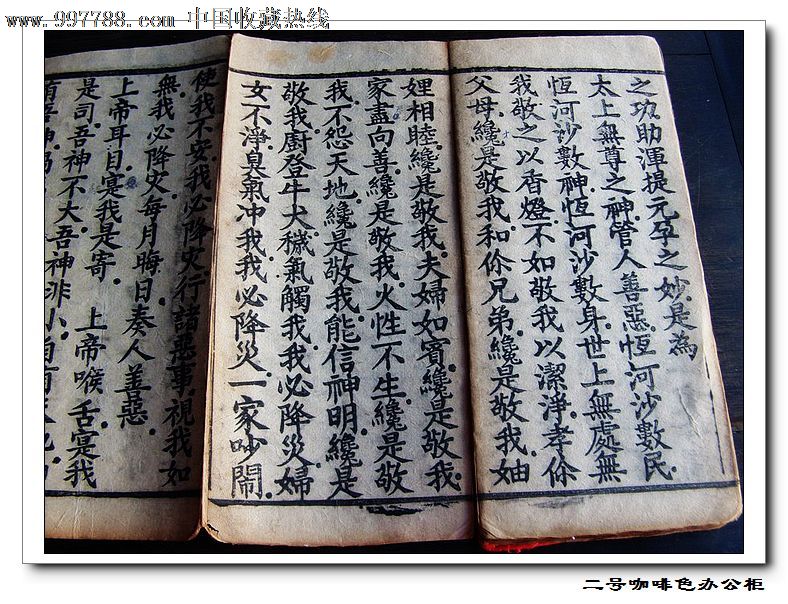 www.997788.com 中国收藏热线
之功助運提元孕之妙.是為
太上無尊之神.管人善惡.恆河沙數民.
恆河沙數神.恆河沙數身.世上無處無
我.敬之以香燈.不如敬我以潔淨.孝你
父母.纔是敬我.和你兄弟.纔是敬我.妯
娌相睦.纔是敬我.夫婦如賓.纔是敬我.
家盡向善.纔是敬我.火性不生.纔是敬
我.不怨天地.纔是敬我.能信神明.纔是
敬我.廚登牛犬.穢氣觸我.我必降災.婦
女不淨.臭氣冲我.我必降災.一家吵鬧.
使我不安.我必降灾.行諸惡事.視我如
無.我必降灾.每月晦日.奏人善惡.
上帝耳目.寔我是寄. 上帝喉舌.寔我
是司.吾神不大.吾神非小.
二号咖啡色办公柜